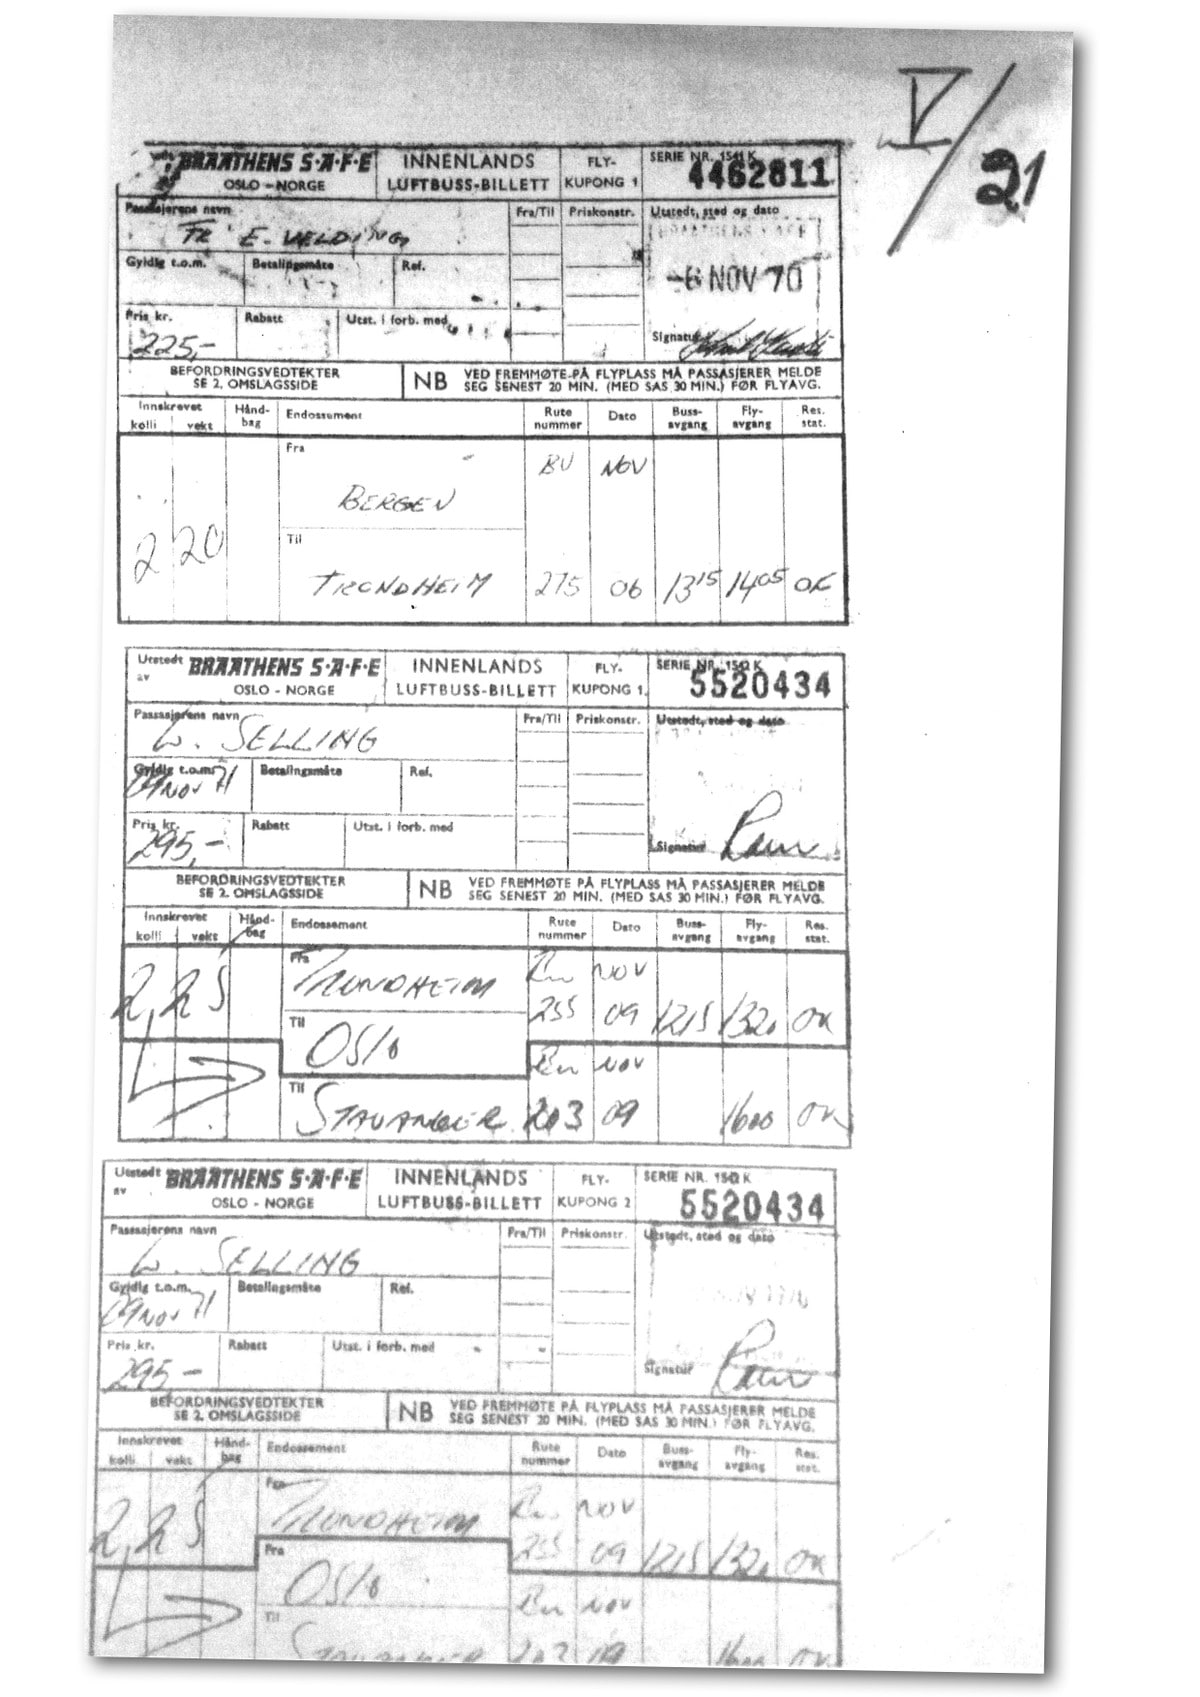 V/21
BRAATHENS S·A·F·E
OSLO - NORGE
INNENLANDS
LUFTBUSS-BILLETT
FLY-
KUPONG 1
SERIE NR. 1511 K
4462811
Passasjerens navn
FR E. VELDING
Fra/Til
Priskonstr.
Utstedt, sted og dato
BRAATHENS SAFE
-6 NOV 70
Gyldig t.o.m.
Betalingsmåte
Ref.
Pris kr.
225,-
Rabatt
Utst. i forb. med
Signatur
BEFORDRINGSVEDTEKTER
SE 2. OMSLAGSSIDE
NB
VED FREMMØTE PÅ FLYPLASS MÅ PASSASJERER MELDE
SEG SENEST 20 MIN. (MED SAS 30 MIN.) FØR FLYAVG.
Innskrevet
kolli vekt
Hånd-
bag
Endossement
Rute
nummer
Dato
Buss-
avgang
Fly-
avgang
Res.
stat.
Fra
BU NOV
BERGEN
2 20
Til
TRONDHEIM 275 06 13 15 14 05 OK
Utstedt
av
BRAATHENS S·A·F·E
OSLO - NORGE
INNENLANDS
LUFTBUSS-BILLETT
FLY-
KUPONG 1
SERIE NR. 1512 K
5520434
Passasjerens navn
W. SELLING
Fra/Til
Priskonstr.
Utstedt, sted og dato
Gyldig t.o.m.
09 NOV 71
Betalingsmåte
Ref.
Pris kr.
295,-
Rabatt
Utst. i forb. med
Signatur
BEFORDRINGSVEDTEKTER
SE 2. OMSLAGSSIDE
NB
VED FREMMØTE PÅ FLYPLASS MÅ PASSASJERER MELDE
SEG SENEST 20 MIN. (MED SAS 30 MIN.) FØR FLYAVG.
Innskrevet
kolli vekt
Hånd-
bag
Endossement
Rute
nummer
Dato
Buss-
avgang
Fly-
avgang
Res.
stat.
Fra
TRONDHEIM NOV
2 25
255 09 1215 1320 OK
Til
OSLO
NOV
Til
STAVANGER 203 09 1600 OK
Utstedt
av
BRAATHENS S·A·F·E
OSLO - NORGE
INNENLANDS
LUFTBUSS-BILLETT
FLY-
KUPONG 2
SERIE NR. 1512 K
5520434
Passasjerens navn
W. SELLING
Fra/Til
Priskonstr.
Utstedt, sted og dato
Gyldig t.o.m.
09 NOV 71
Betalingsmåte
Ref.
Pris kr.
295,-
Rabatt
Utst. i forb. med
Signatur
BEFORDRINGSVEDTEKTER
SE 2. OMSLAGSSIDE
NB
VED FREMMØTE PÅ FLYPLASS MÅ PASSASJERER MELDE
SEG SENEST 20 MIN. (MED SAS 30 MIN.) FØR FLYAVG.
Innskrevet
kolli vekt
Hånd-
bag
Endossement
Rute
nummer
Dato
Buss-
avgang
Fly-
avgang
Res.
stat.
Fra
TRONDHEIM NOV
2 25
255 09 1215 1320 OK
Fra
OSLO
NOV
Til
STAVANGER 203 09 1600 OK